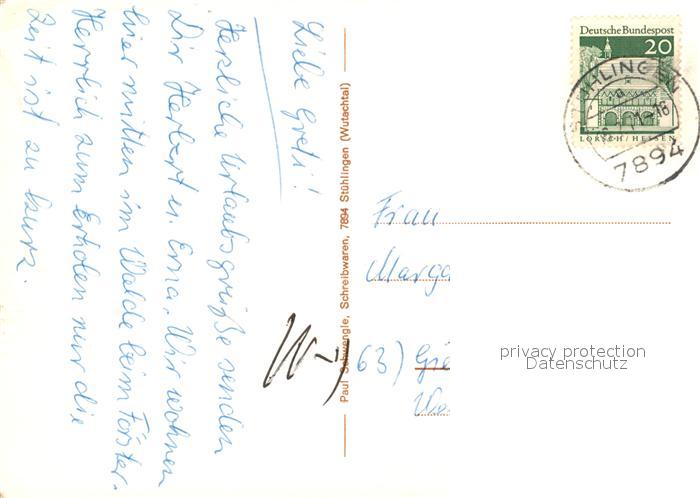 Liebe Greti!
Herzliche Urlaubsgrüße senden
Dir Herbert u. Erna. Wir wohnen
hier mitten im Walde beim Förster.
Herrlich zum Erholen nur die
Zeit ist zu kurz.
Paul Schwengle, Schreibwaren, 7894 Stühlingen (Wutachtal)
Deutsche Bundespost
20
LORSCH/HESSEN
STÜHLINGEN
-18
7894
Frau
Marga
63) Gie
privacy protection
Datenschutz